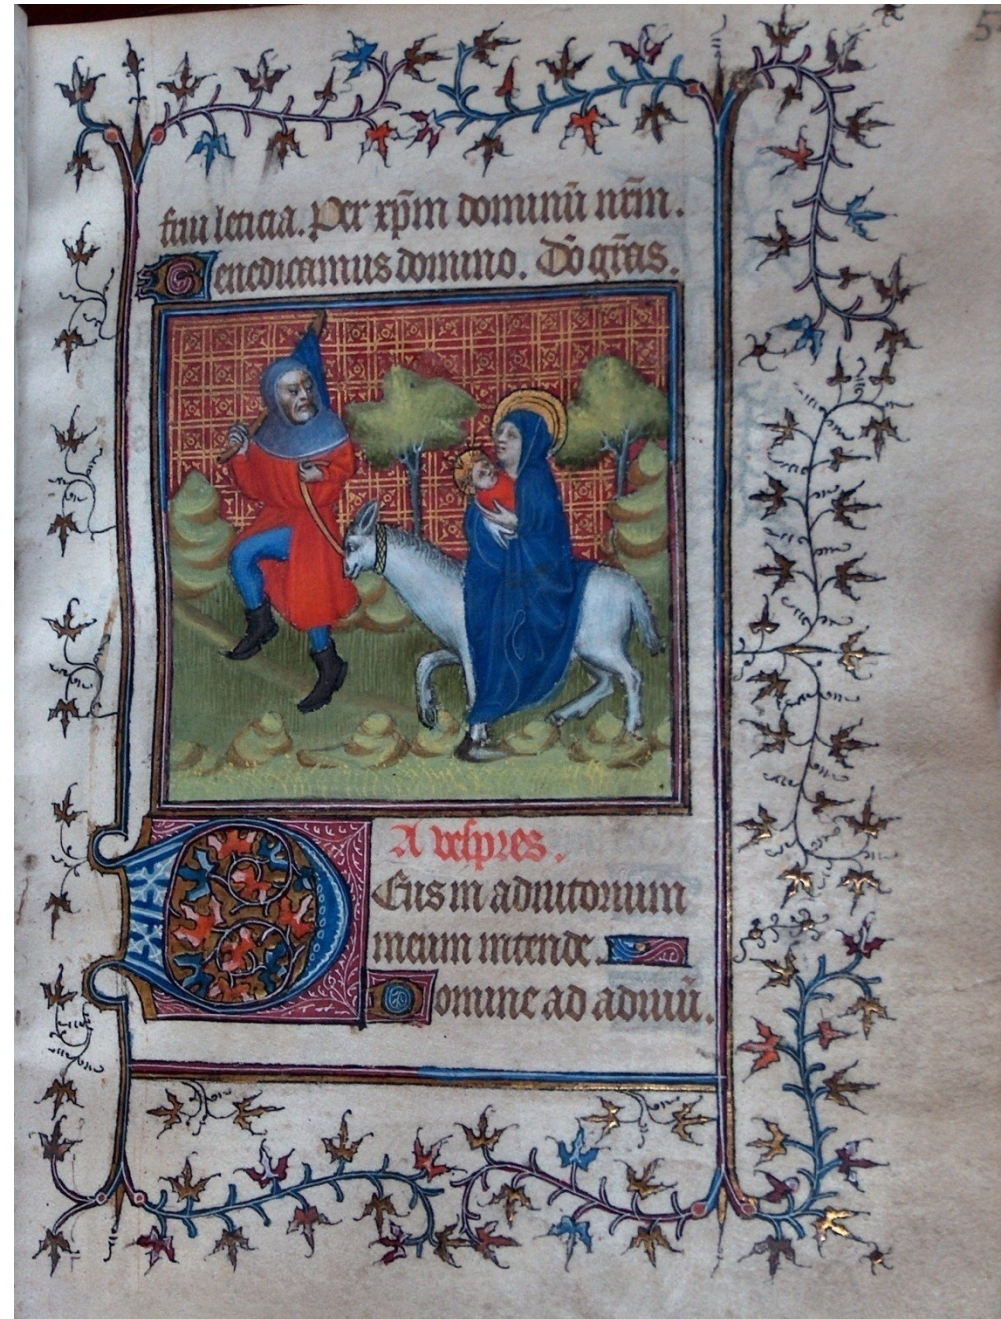 5
frui leticia. Per xp̄m dominū nr̄m.
Benedicamus domino. Dō gr̄as.
A vespres.
Deus in adiutorium
meum intende
Domine ad adiuū.